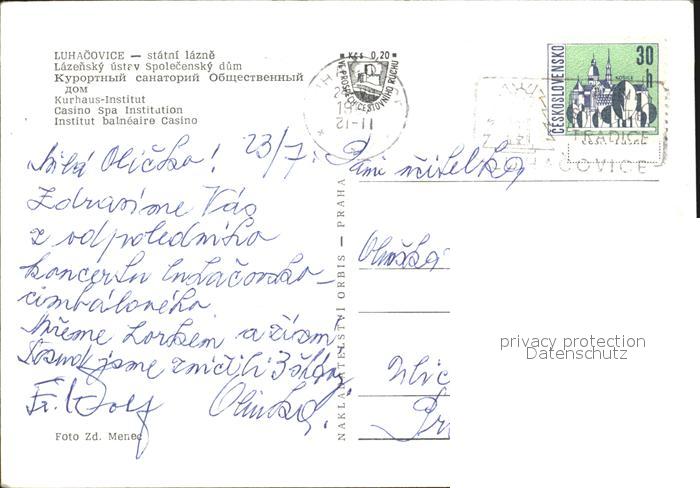 LUHAČOVICE — státní lázně
Lázeňský ústav Společenský dům
Курортный санаторий Общественный
дом
Kurhaus-Institut
Casino Spa Institution
Institut balnéaire Casino
Kčs 0,20
VE PROSPĚCH CESTOVNÍHO RUCHU
21-11
ČESKOSLOVENSKO
30 h
TRADICE
LUHAČOVICE
Milá Oličko! 23/7.
Zdravíme Vás
z odpoledního
koncertu luhačovsko-
cimbálového
Mřeme horkem a žízní
jsme zničili 3
Olinka
Paní učitelka
NAKLADATELSTVÍ ORBIS — PRAHA
Foto Zd. Menec
privacy protection
Datenschutz